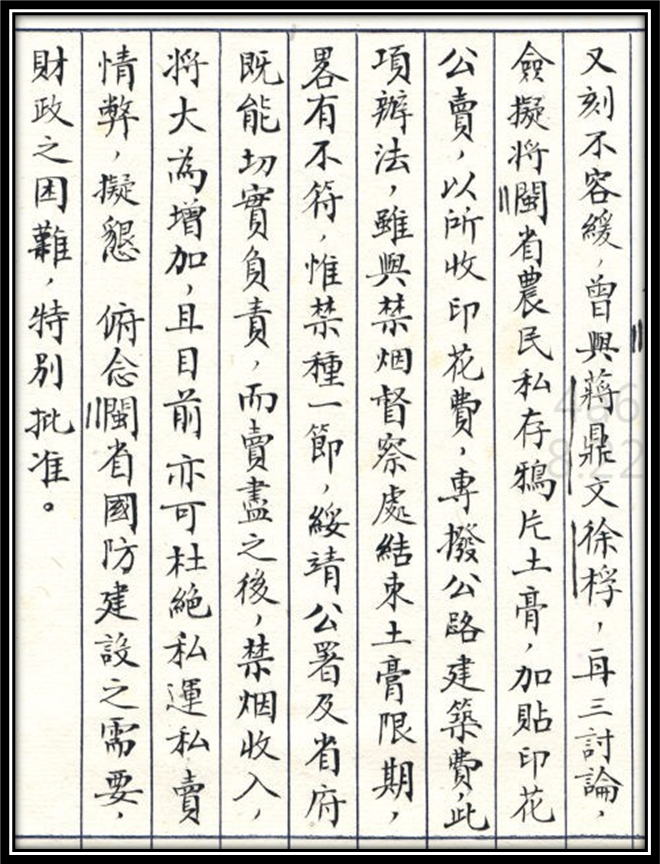 又刻不容緩，曾與蔣鼎文徐桴，再三討論，
僉擬將閩省農民私存鴉片土膏，加貼印花
公賣，以所收印花費，專撥公路建築費，此
項辦法，雖與禁烟督察處結束土膏限期，
畧有不符，惟禁種一節，綏靖公署及省府
既能切實負責，而賣盡之後，禁烟收入，
將大為增加，且目前亦可杜絕私運私賣
情弊，擬懇 俯念閩省國防建設之需要，
財政之困難，特別批准。